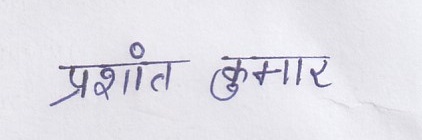 प्रशांत कुमार